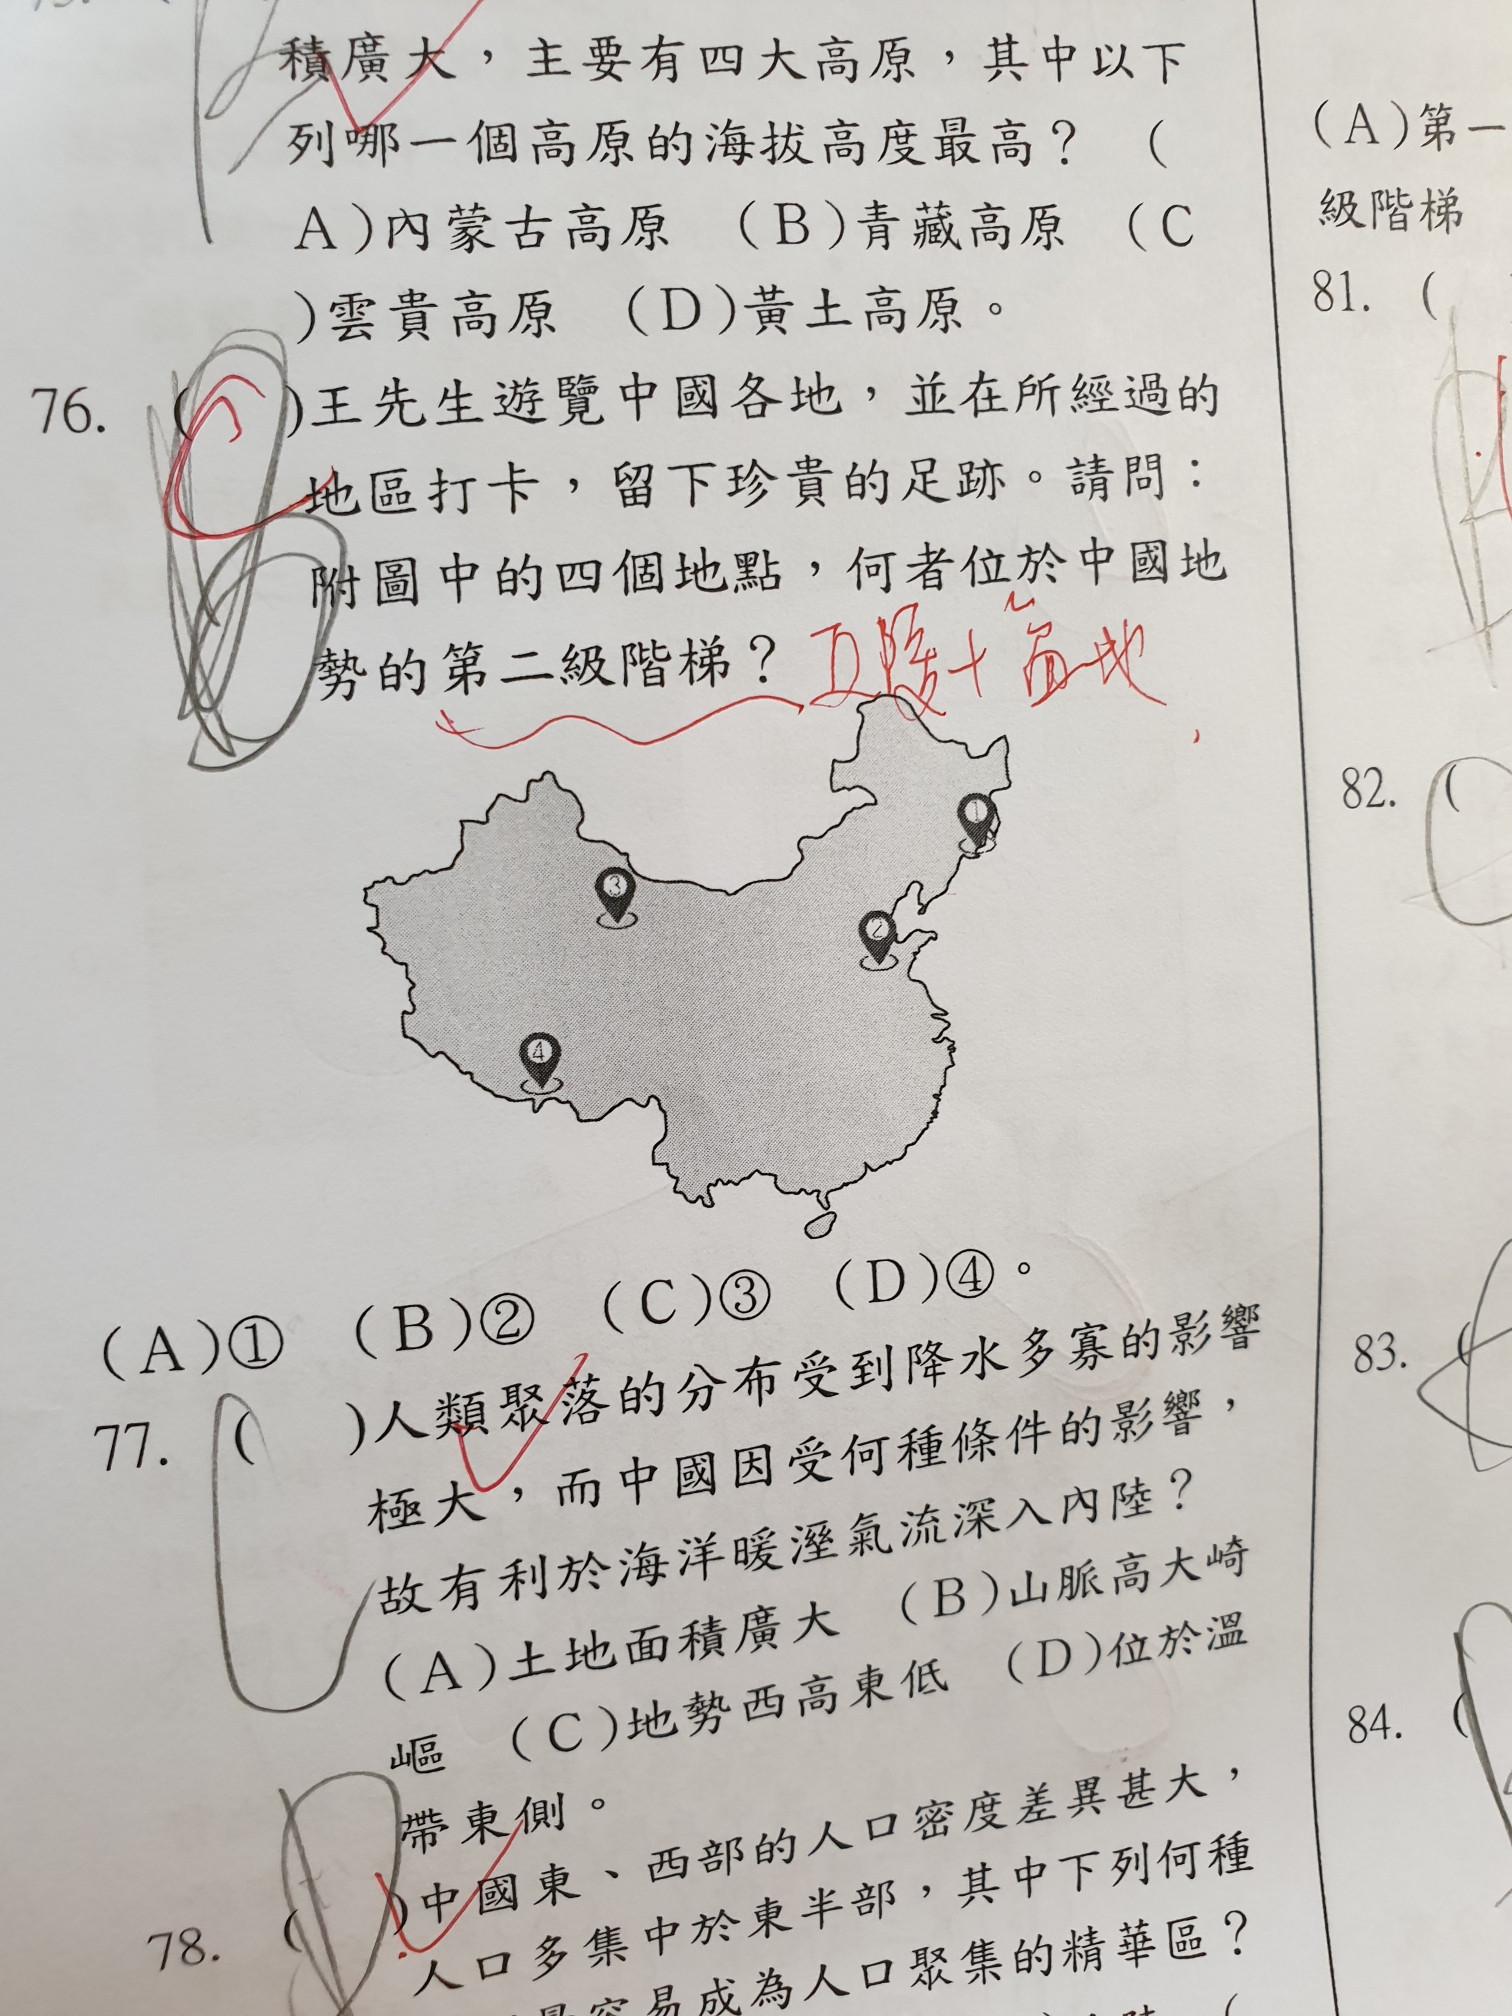 積廣大，主要有四大高原，其中以下
列哪一個高原的海拔高度最高？ （
A）內蒙古高原 （B）青藏高原 （C
）雲貴高原 （D）黃土高原。
76. （ ）王先生遊覽中國各地，並在所經過的
地區打卡，留下珍貴的足跡。請問：
附圖中的四個地點，何者位於中國地
勢的第二級階梯？
①
③
②
④
（A）① （B）② （C）③ （D）④。
77. （ ）人類聚落的分布受到降水多寡的影響
極大，而中國因受何種條件的影響，
故有利於海洋暖溼氣流深入內陸？
（A）土地面積廣大 （B）山脈高大崎
嶇 （C）地勢西高東低 （D）位於溫
帶東側。
78. （ ）中國東、西部的人口密度差異甚大，
人口多集中於東半部，其中下列何種
容易成為人口聚集的精華區？
（A）第一
級階梯
81. （
82. （
83. （
84. （